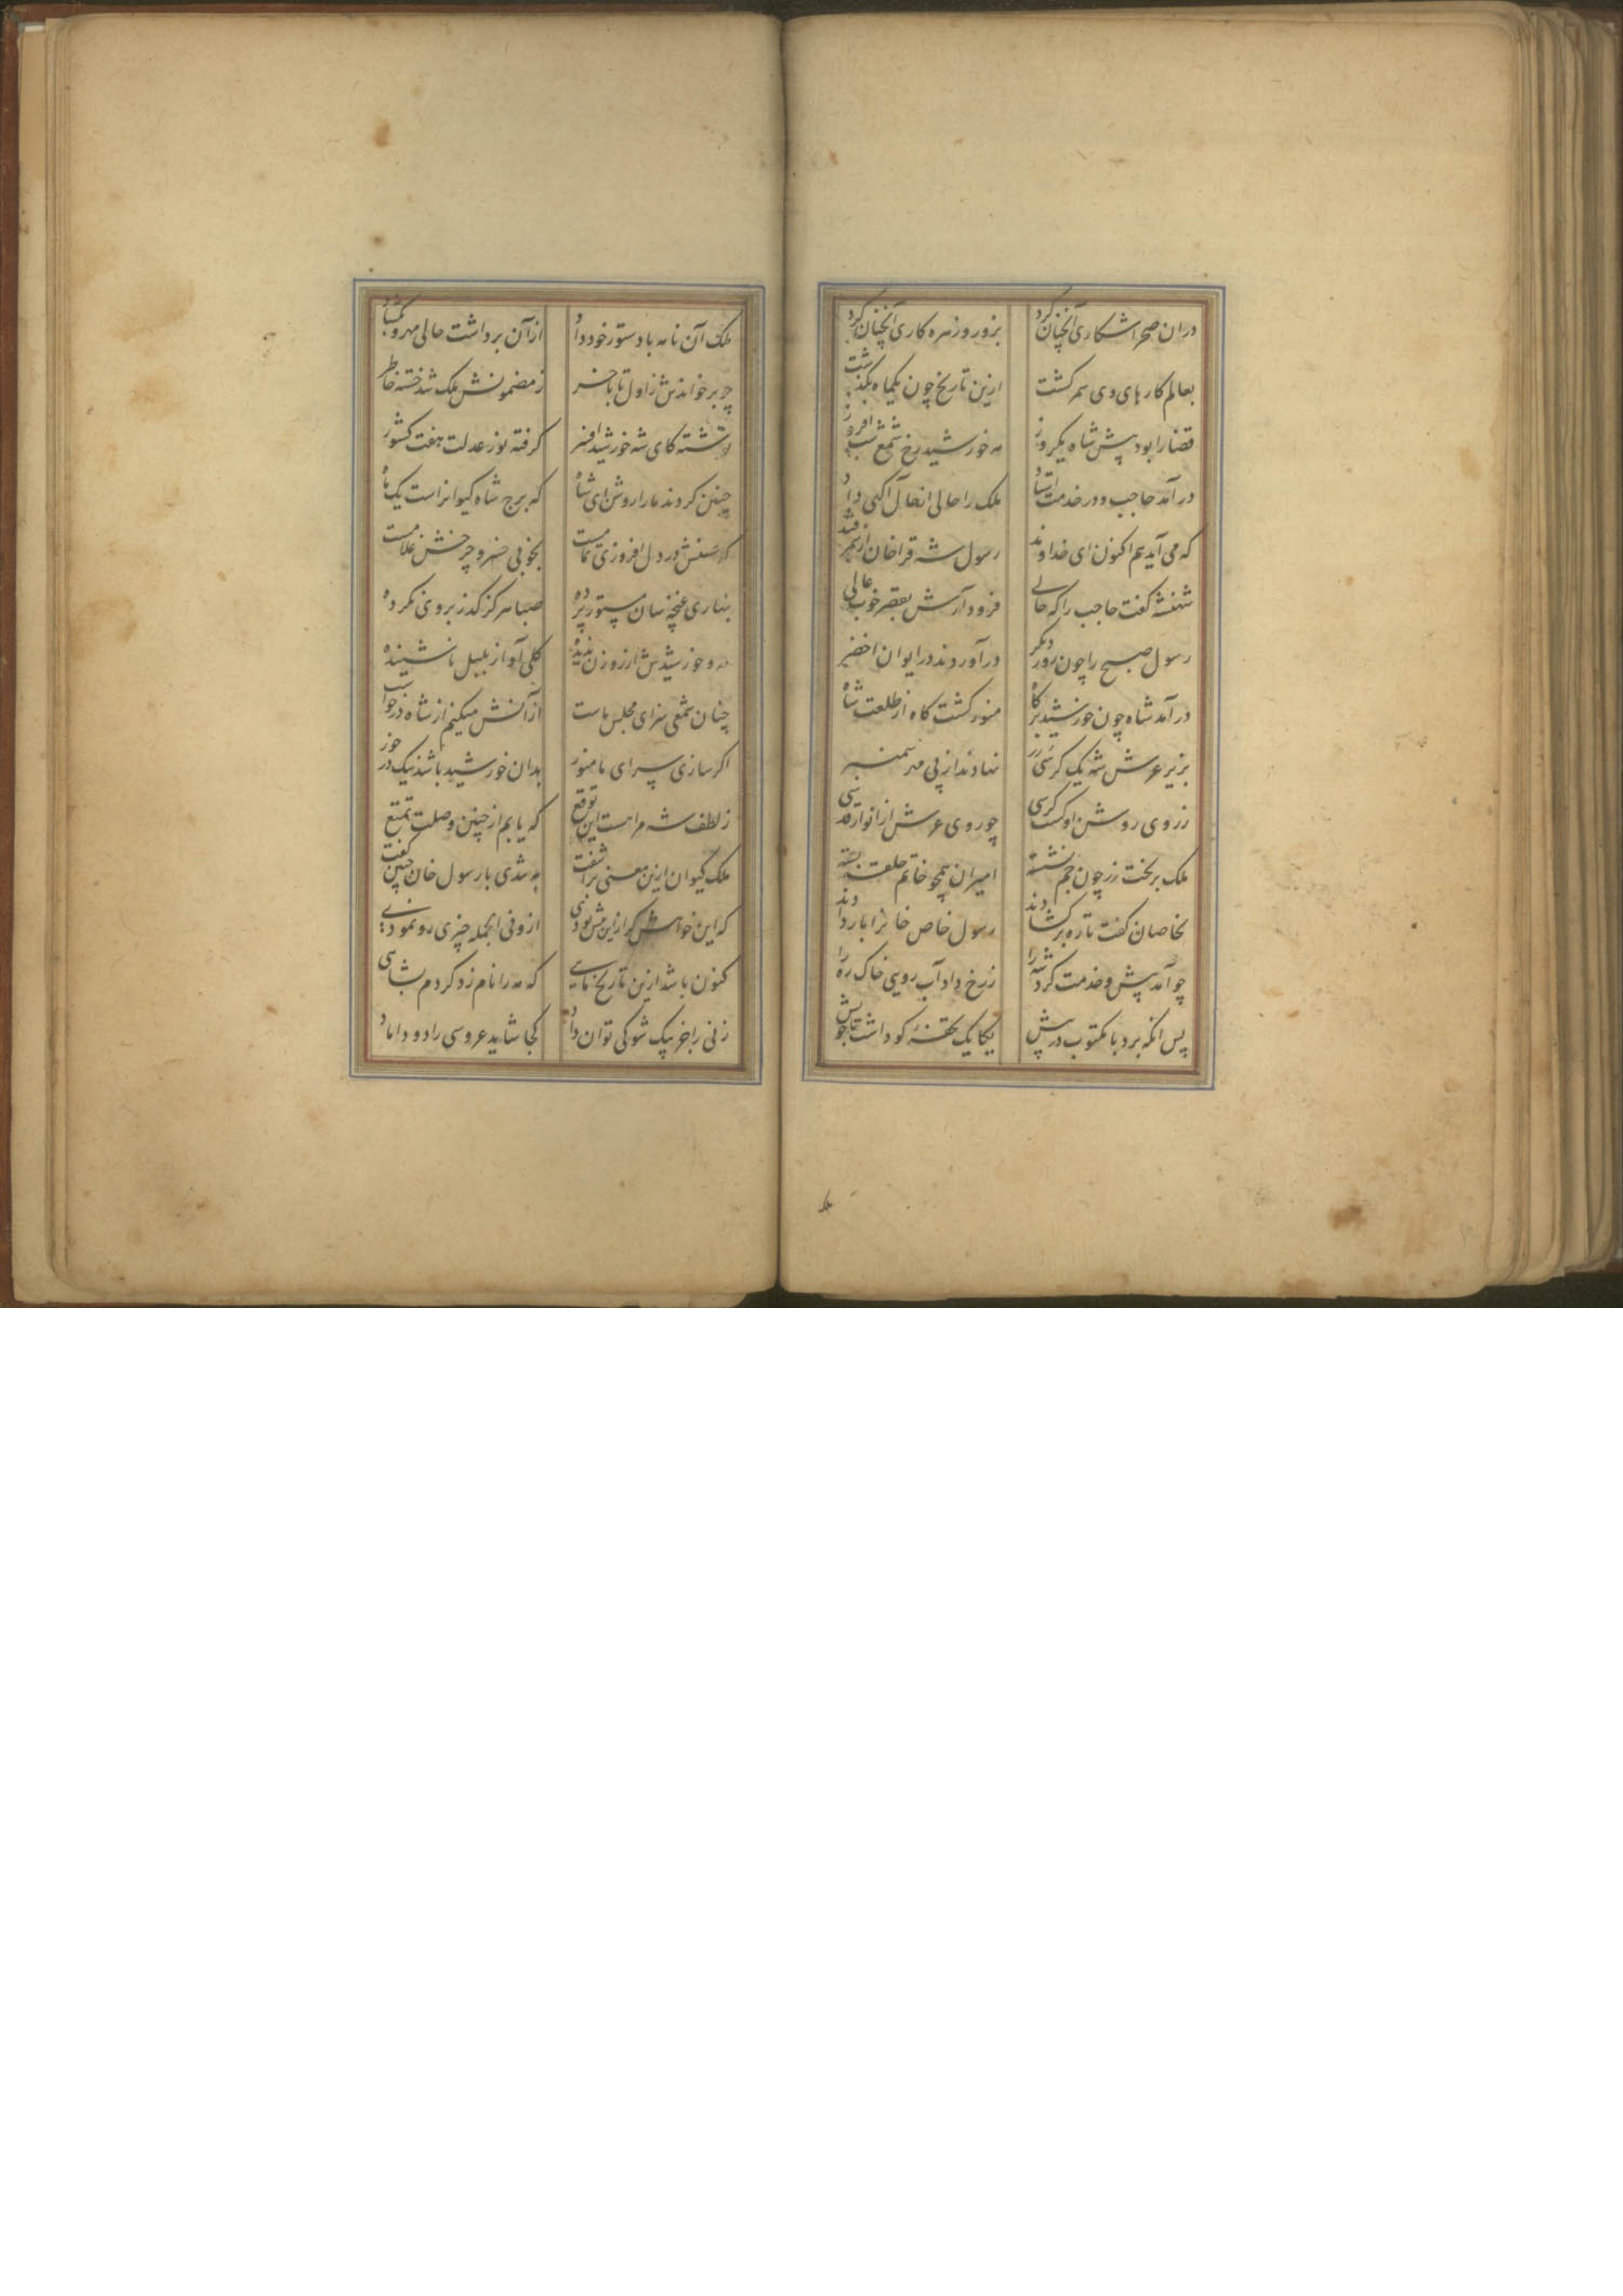 دران صحرا شکاری آنچنان کرد بزور و زهره کاری آنچنان کرد
بعالم کارهای وی سمر کشت ازین تاریخ چون یکماه بگذشت
قضا را بود پیش شاه یکروز مه خورشید رخ شمع شب افروز
درآمد حاجب و در خدمت استاد ملک را حالی از حال آکهی داد
که می آید هم اکنون ای خداوند رسول شه قراخان از سمرقند
شهنشه کفت حاجب را که حالی فرود آرش بقصر خوب عالی
رسول صبح را چون روز دیکر درآوردند در ایوان اخضر
درآمد شاه چون خورشید برکاه منور کشت کاه از طلعت شاه
بزیر عرش شه یک کرسی زر نهادند از پی
ز روی روشن او کشت کرسی چو روی عرش از انوار قدسی
ملک بر تخت زر چون جم نشسته امیران همچو خاتم حلقه بسته
بخاصان کفت تا ره برکشادند رسول خاص خانرا بار دادند
چو آمد پیش و خدمت کرد شه را ز رخ داد آب روی خاک ره را
پس آنکه برد با مکتوب در پیش یکایک تحفهٔ کو داشت با خویش
ملک
ملک آن نامه با دستور خود داد از آن برداشت حالی مهر و بکشاد
چو برخواندش ز اول تا بآخر ز مضمونش ملک شد خسته خاطر
نوشته کای شه خورشید افسر کرفته نور عدلت هفت کشور
چنین کردند ما را روشن ای شاه که برج شاه کیوانراست یک ماه
که حسنش در دل افروزی تمامست بخوبی خسرو چرخش غلامست
بناری غنچه سان مستور پرده صبا هرکز کذر بر وی نکرده
مه و خورشیدش از روزن ندیده کلی آواز بلبل ناشنیده
چنان شمعی سزای مجلس ماست از آنش میکنم از شاه درخواست
اکر سازی سرای ما منور بدان خورشید باشد نیک در خور
ز لطف شه مرا هست این توقع که یابم از چنین وصلت تمتع
ملک کیوان ازین معنی برآشفت به تندی با رسول خان چنین کفت
که این خواهش کر ازین پیش بودی ازو فی الجمله چیزی رو نمودی
کنون باشد ازین تاریخ ماهی که مه را نام زد کردم بشاهی
زنی را جز بیک شو کی توان داد کجا شاید عروسی را دو داماد